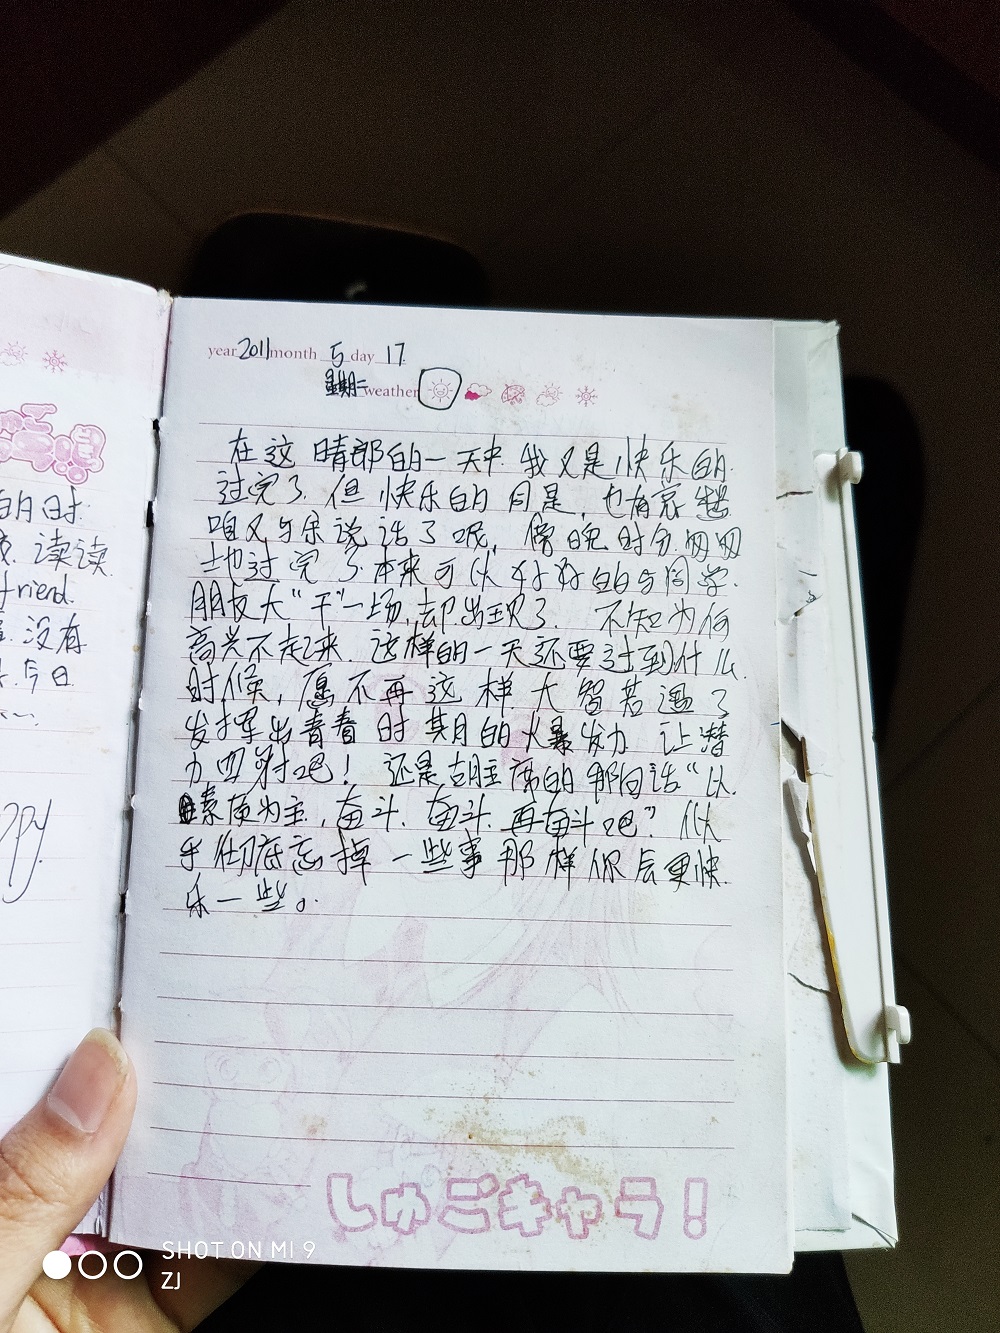 year 2011 month 5 day 17
星期二 weather
在这晴郎的一天中 我又是快乐的
过完了.但快乐的同是,也有哀愁
咱又与宗说话了呢,傍晚时分.匆匆
地过完了.本来可以好好的与同学.
朋友大“干”一场,却出现了 不知为何
高兴不起来.这样的一天还要过到什么
时候,愿不再这样大智若遇了
发挥出青春时其月的火暴发力 让潜
力四射吧! 还是胡主席的那句话“以
素质为主,奋斗.奋斗.再奋斗吧”似
乎彻底忘掉一些事那样你后更快
乐一些。
白日时
读读
friend.
没有
今日
ppy
しゅごキャラ!
SHOT ON MI 9
ZJ